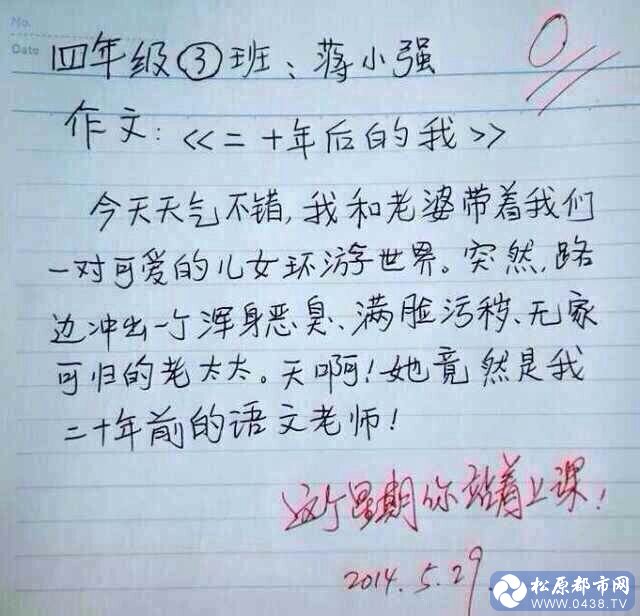 No.
Date
四年级③班：蒋小强
0
作文：《二十年后的我》
今天天气不错，我和老婆带着我们
一对可爱的儿女环游世界。突然，路
边冲出一个浑身恶臭、满脸污秽、无家
可归的老太太。天啊！她竟然是我
二十年前的语文老师！
这个星期你站着上课！
2014.5.29
松原都市网
www.0438.TV